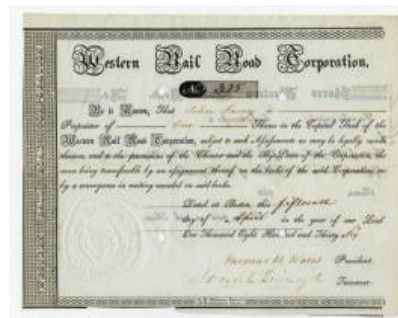 Western Rail Road Corporation.
No 335
Be it Known, That John
Proprietor of One Share in the Capital Stock of the
Western Rail Road Corporation, subject to such Assessments as may be legally made
thereon, and to the provisions of the Charter and the Bye-Laws of the Corporation, the
same being transferable by an assignment thereof in the books of the said Corporation, or
by a conveyance in writing recorded in said books.
Dated at Boston, this fifteenth
day of April in the year of our Lord
One Thousand Eight Hundred and Thirty Six
Thomas B. Wales President
Josiah Quincy Jr Treasurer